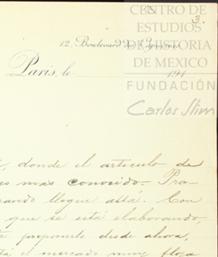 CENTRO DE
ESTUDIOS
DE HISTORIA
DE MEXICO
FUNDACIÓN
Carlos Slim
3.
12, Boulevard des
Paris, le 191
donde el articulo de
es más conocido. Pro-
ando llegue allá. Con
que se está elaborando,
proponerle desde ahora,
tá el mercado muy flojo